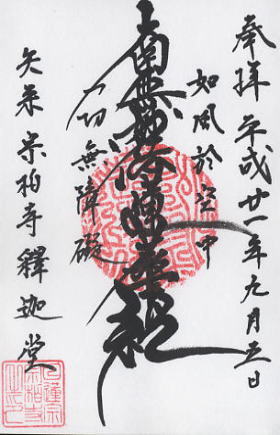 奉拝 平成廿一年九月五日
如風於空中
南無妙法蓮華経
一切無障礙
矢来 宗柏寺 釋迦堂
日蓮宗
宗柏寺